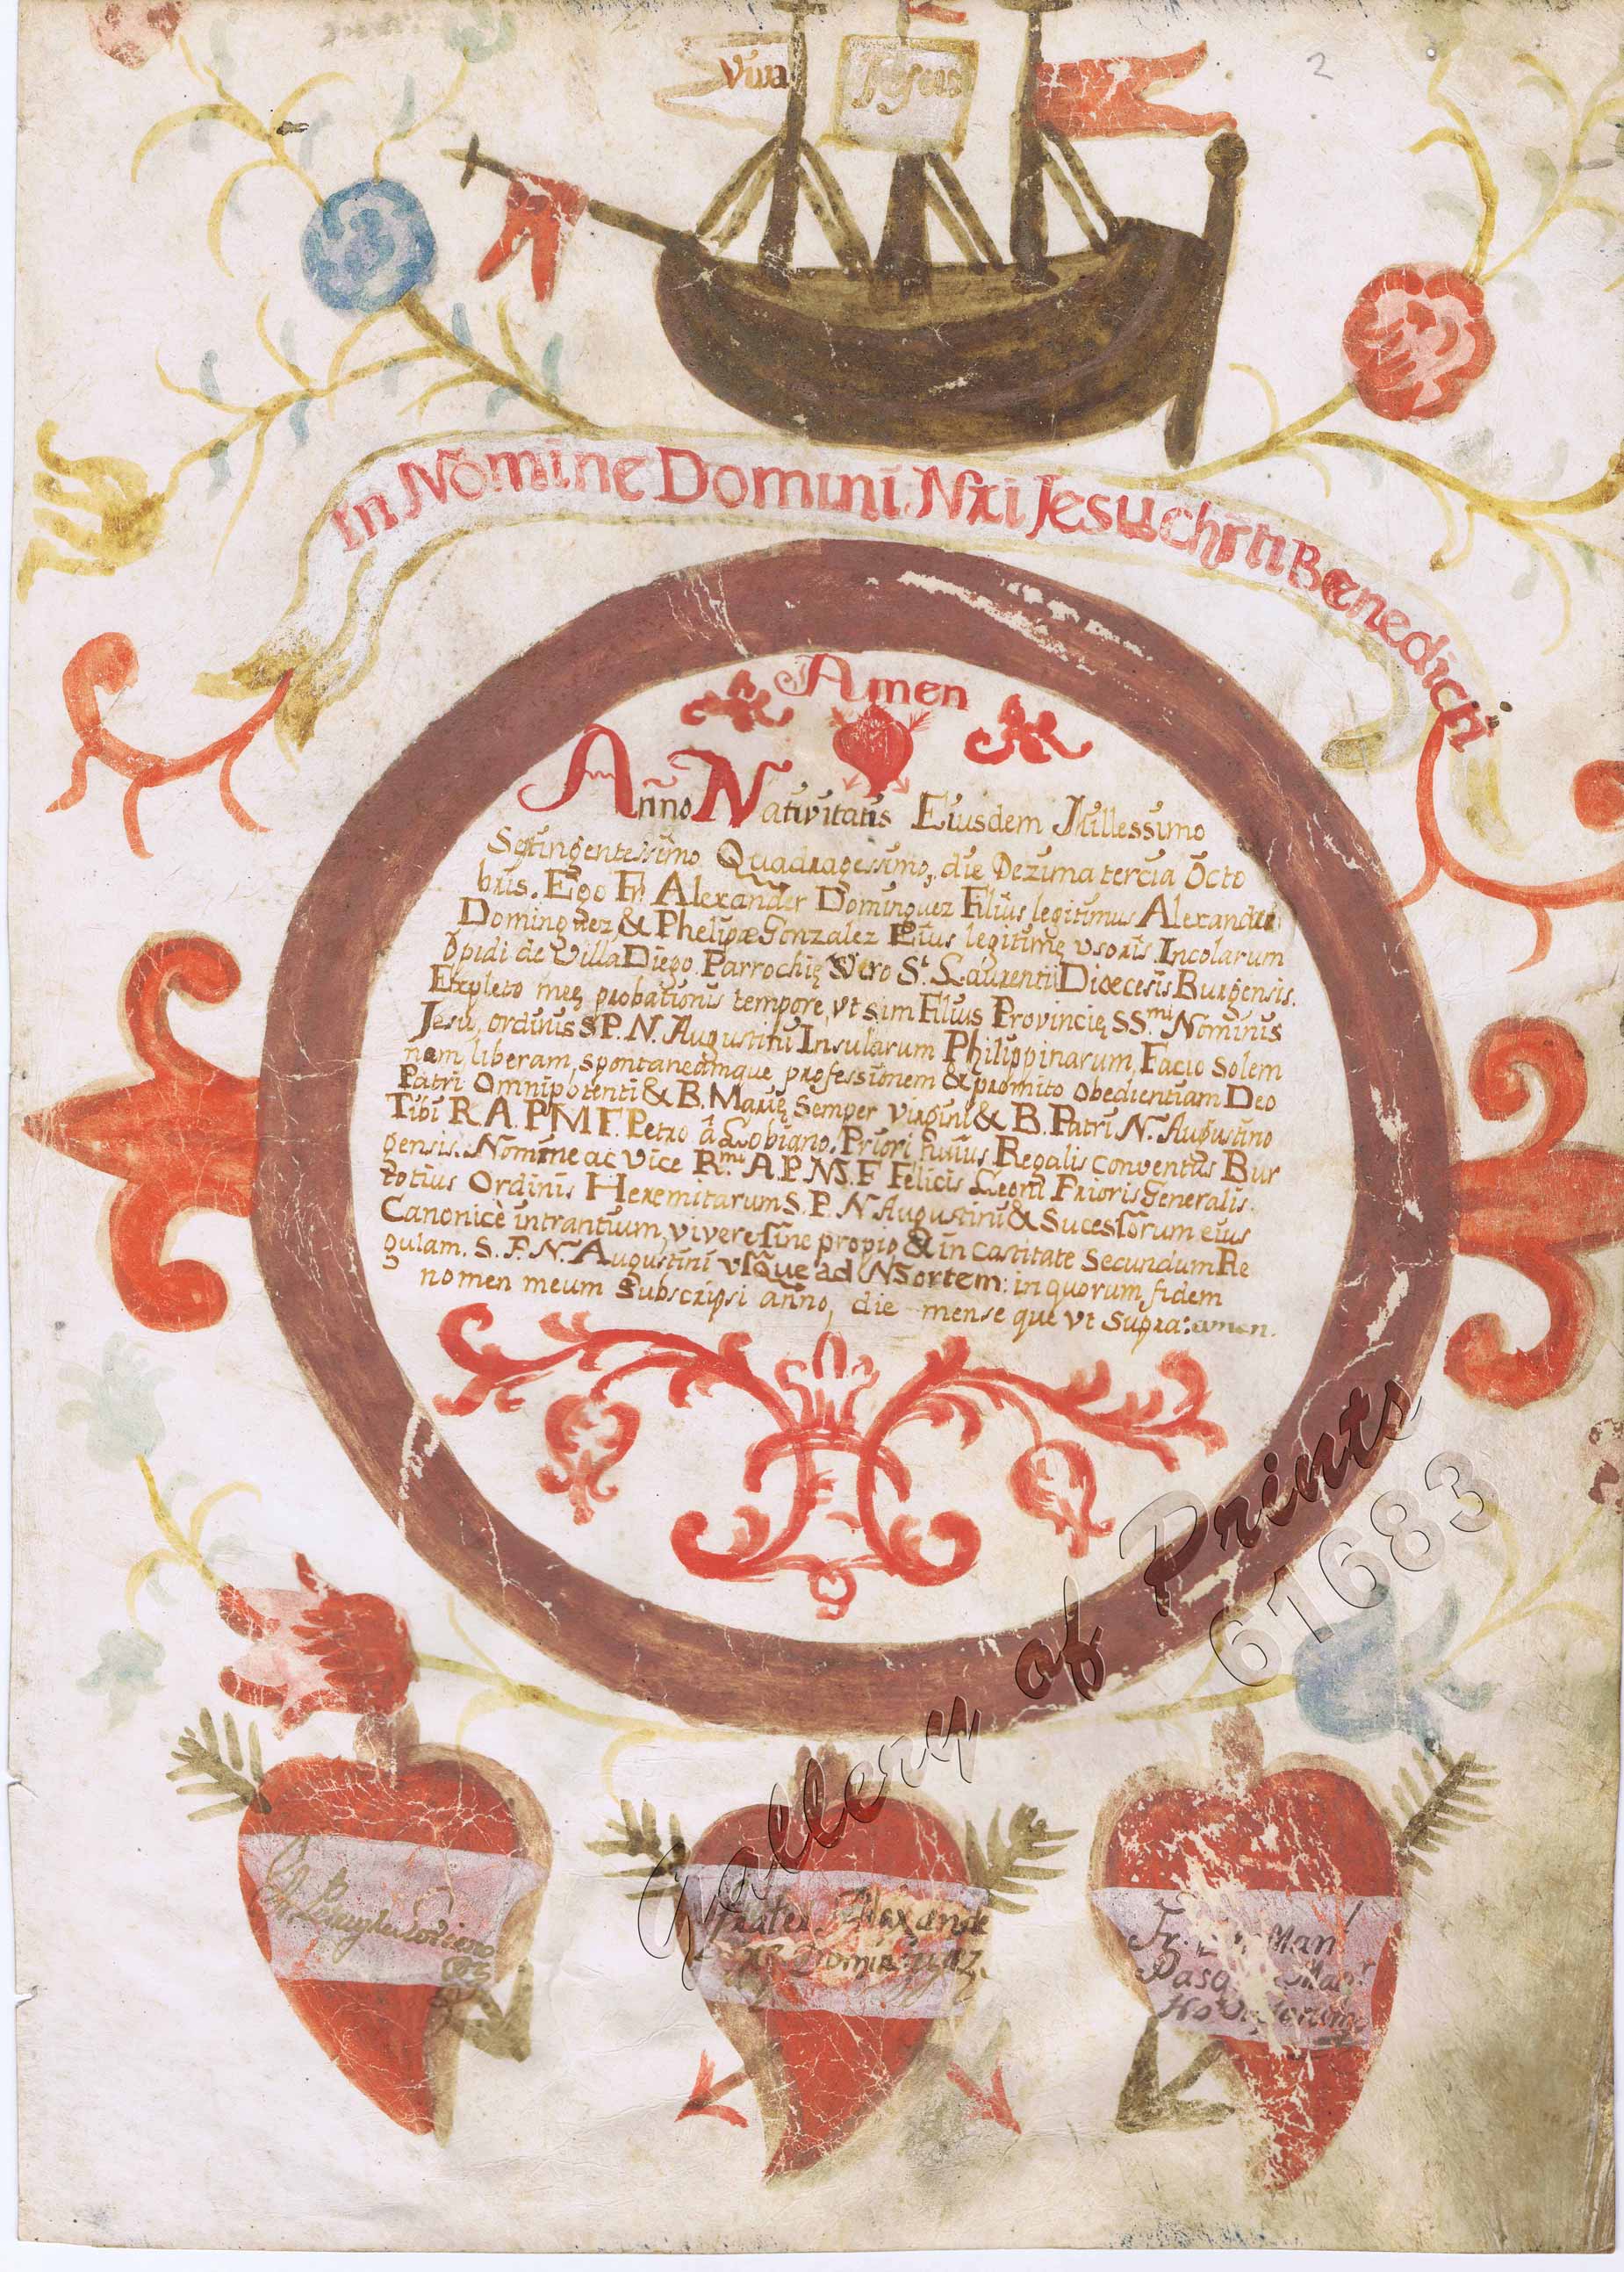 2
Viva
Jesus
In Nomine Domini Nri Jesuchr̃ti Benedicti
Amen
Añno Nativitatis Eiusdem Millessimo
Septingentessimo Quadragessimo, die Dezima tercia Octo
bris. Ego Fr. Alexander Dominguez Filius legitimus Alexandri
Dominguez, & Phelipæ Gonzalez Eius legitimę usoris Incolarum
Opidi de Villa Diego Parrochię Vero St. Laurentii Diœcesis Burgensis.
Expleto meę probationis tempore, vt sim Filius Provincię SS.mi Nominis
Jesu, ordinis S P. N. Augustini Insularum Philippinarum, Facio Solem
nem, liberam, spontaneamque, professionem & promito obedientiam Deo
Patri Omnipotenti & B. Marię, Semper Virgini & B. Patri N. Augustino
Tibi R A. P. M F. Petro â Lobiano. Priori huius Regalis conventus Bur
gensis. Nomine ac vice R.mi A. P. M. F Felicis Leoni Prioris Generalis.
totius Ordinis Heremitarum S. P. N Augustini & Sucessorum eius
Canonicè intrantium, vivere sine propio, & in castitate Secundum Re
gulam. S. P. N. Augustini vsque ad Mortem: in quorum fidem
nomen meum Subscripsi añno, die mense que vt Supra: amen.
Frater Alexande
Dominguez.
Fr. Man
Gallery of Prints
61683